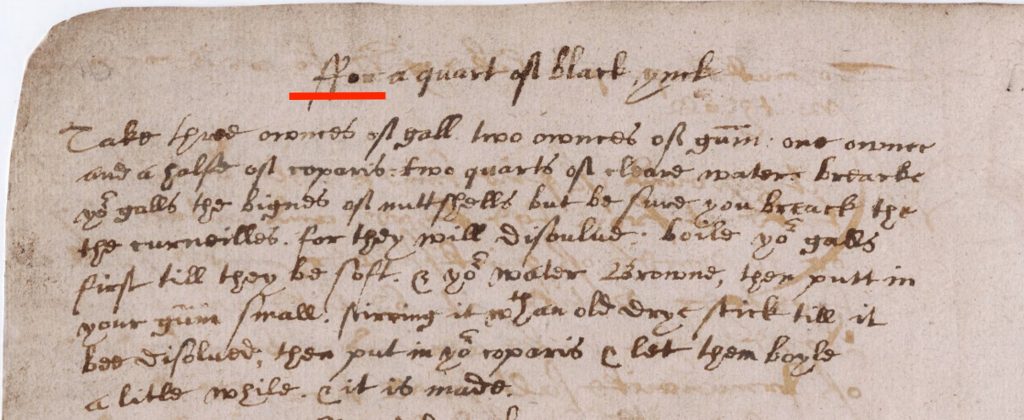 ffor a quart off black ynck
Take three ownces off gall two ownces off gum̄: one ownce
and a halfe off coparis: two quarts off cleare water: breacke
yor galls the bignes off nuttshells but be sure you breack the
the curneilles. for they will disoulue: boile yor galls
first till they be soft. & yor water Browne, then putt in
your gum̄ small. stirring it wth an old drye stick till it
bee disolued, then put in yor coparis & let them boyle
a litle while. & it is made.